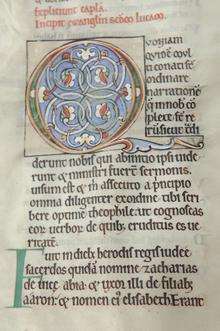 Expliciunt capl̃a.
Incipit evangliũ scd̃m lucam.
Quoniam
quidẽ mul
ti conati sẽ
ordinare
narrationẽ
q̃ in nob̃ cõ
plete sẽ re
rũ sicut t͛di
derunt nobis qui ab initio ipsi uide
runt & ministri fuer̃ sermonis.
uisum est & m̃ assecuto a prıncipio
omnia diligenter ex ordine tibi scri
bere optime theophile. ut cognoscas
eoꝝ uerboꝝ de quib; eruditus es ue
ritatẽ.
Fuit in dieb; herodis regis iudeę
sacerdos quidã nomine zacharias
de uice abia. & uxor illi de filiab;
aaron. & nomen ei elisabeth. Erant